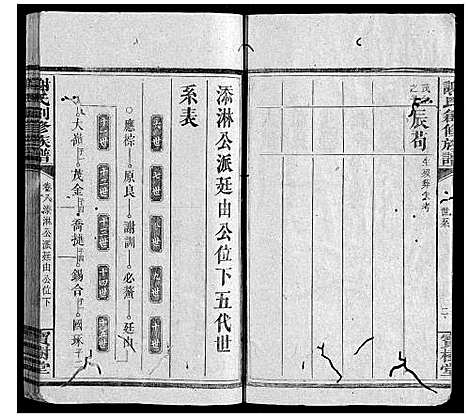 謝氏創修族譜
世系
寶樹堂
茂
之
辰苟
生歿葬失考
添淋公派廷由公位下五代世
系表
六世 七世 八世 九世 十世
應棕 原良 謝訓 必蕎 廷由
十一世 十二世 十三世 十四世 十五世
大嶺 茂金 喬捷 錫合 國琢
謝氏創修族譜
卷八添淋公派廷由公位下
寶樹堂